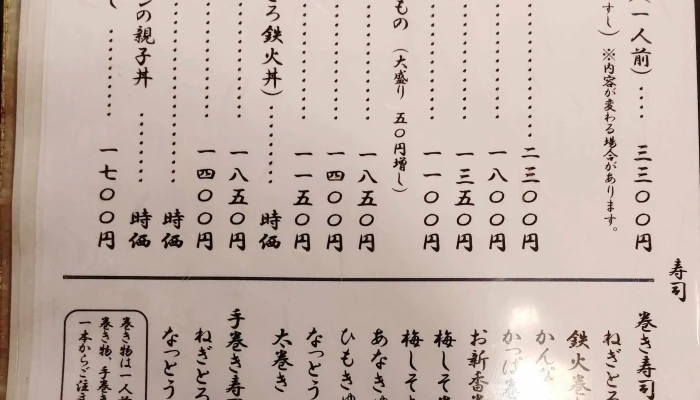 一人前）‥‥ 三三〇〇円
すし）※内容が変わる場合があります。
二三〇〇円
一八〇〇円
一三五〇円
一一〇〇円
もの（大盛り 五〇円増し）
一八五〇円
一四〇〇円
一一五〇円
ろ鉄火丼）‥‥ 時価
一八五〇円
一四〇〇円
時価
の親子丼‥‥ 時価
一七〇〇円
寿司
巻き寿司
ねぎとろ
鉄火巻
かん
かっぱ巻
お新香巻
梅しそ巻
梅しそ
あなきゅ
ひもきゅ
なっとう
太巻き
手巻き寿司
ねぎとろ
なっとう
巻き物は一人前
巻き物、手巻き
一本からご注